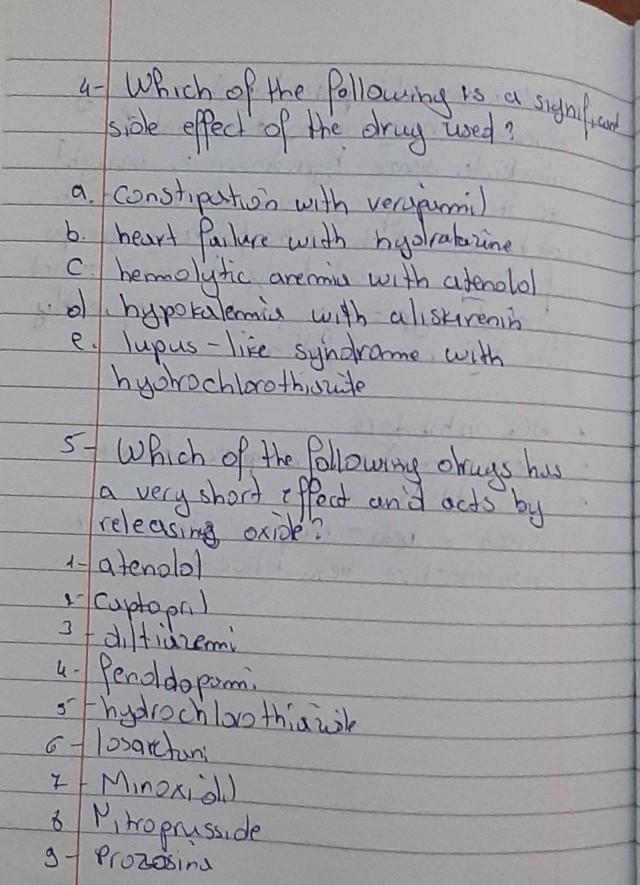 4- Which of the following is a significant
side effect of the drug used?
a. constipation with verapamil
b. heart failure with hydralazine
c hemolytic anemia with atenolol
d) hypokalemia with aliskirenin
e. lupus-like syndrome with
hydrochlorothiazide
5- Which of the following drugs has
a very short effect and acts by
releasing oxide?
1- atenolol
2- Captopril
3- diltiazemi
4- fenoldopami
5- hydrochlorothiazide
6- losartani
7- Minoxidil
8 Nitroprusside
9- Prozosina